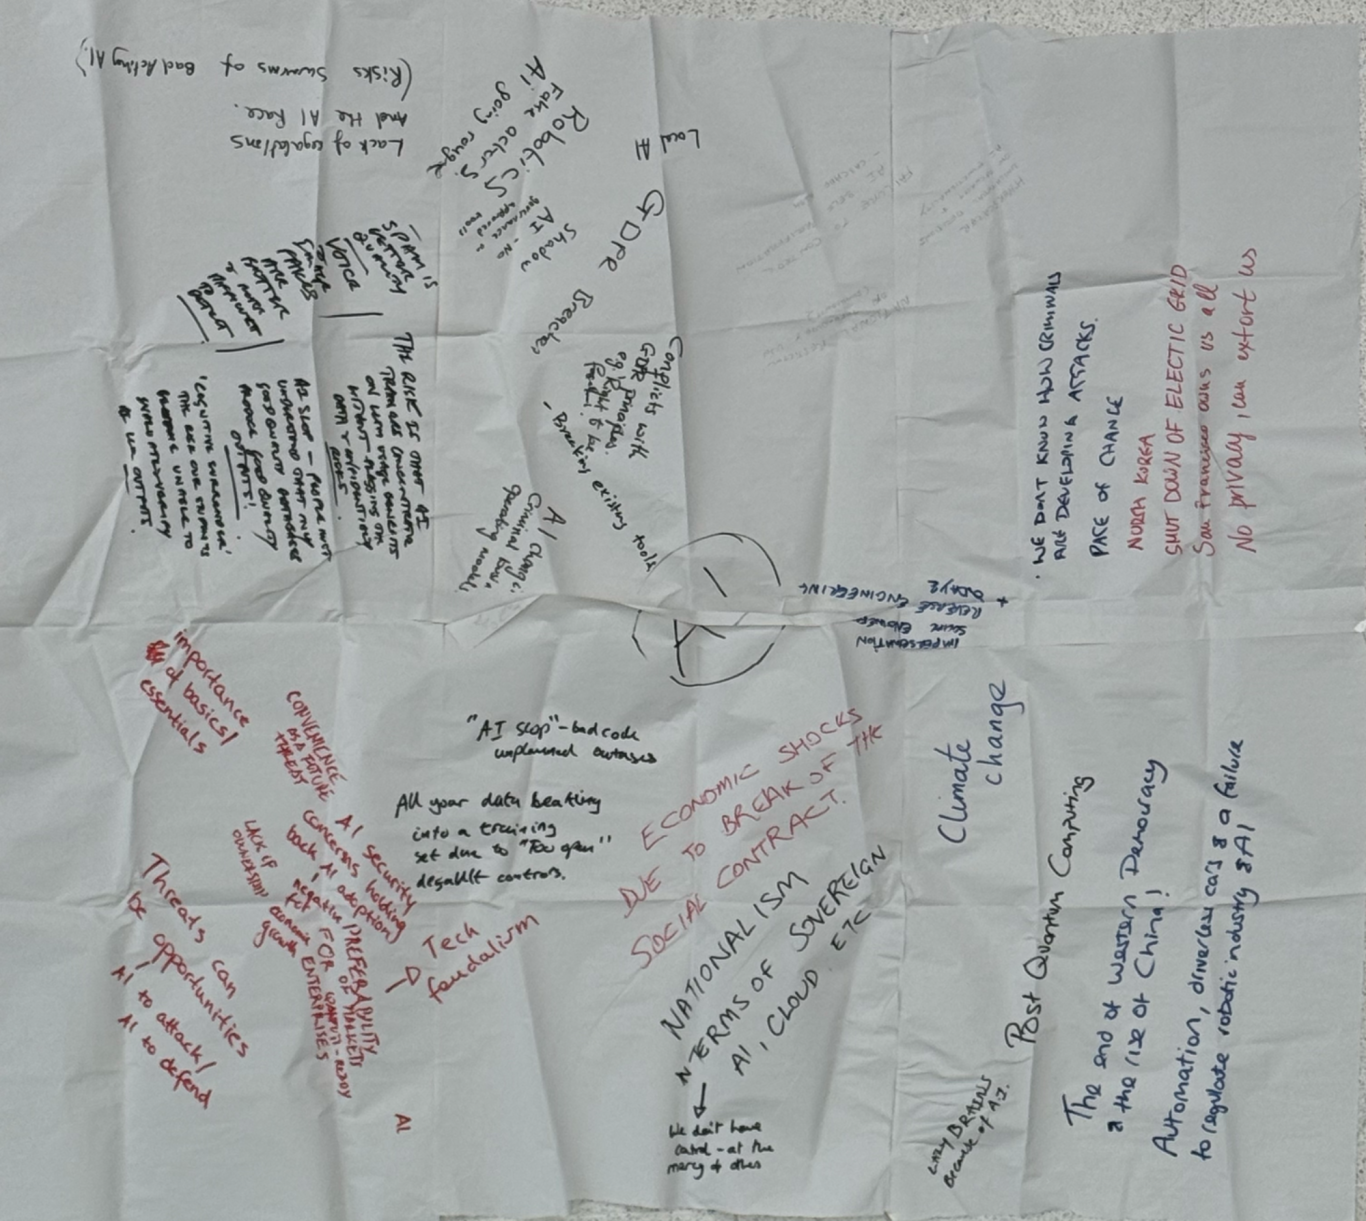 (Risks Swarms of Bad Acting AI.)
And the AI Race.
Lack of regulations
AI going rogue
Fake actors.
Robotics
Local AI
Shadow
AI - No
governance or
approved tools
GDPR Breaches
SPAM IS
BETTER
QUALITY
VOICE
FAKES
ARE
BETTER
& MORE
DIFFICULT
TO
DETECT
THE RISK IS THAT AI
TEAMS ARE CONCENTRATE
ON LLM USAGE BENEFITS
WITHOUT ASSESSING THE
DATA & CONFIDENTIALITY
RISKS.
AI SLOP - PEOPLE NOT
UNDERSTAND THAT ONLY
GOOD QUALITY DATABASES
PRODUCE GOOD QUALITY
OUTPUTS!
'COGNITIVE SURRENDER'
THE RISK OUR STUDENTS
BECOME UNABLE TO
AI LLM OUTPUTS.
Conflicts with
GDPR principles,
eg Right to be
- Breaking existing tools
AI changing
Criminal Law &
operating models
· WE DON'T KNOW HOW CRIMINALS
ARE DEVELOPING ATTACKS.
PACE OF CHANGE
NORTH KOREA
SHUT DOWN OF ELECTIC GRID
San Francisco owns us all
No privacy, can extort us
IMPERSONATION
+ REVERSE ENGINEERING
0DAYS
A I
importance
of basics/
essentials
CONVENIENCE
AS A FUTURE
THREAT
AI security
concerns holding
back AI adoption
negative
for
economic
growth
LACK OF
OWNERSHIP
PREFERABILITY
OF MARKETS
FOR QUANTUM-READY
ENTERPRISES
Threats can
be opportunities
AI to attack/
AI to defend
Tech
feudalism
AI
"AI slop" - bad code
unplanned outages
All your data beatting
into a training
set due to "Too open"
default controls.
ECONOMIC SHOCKS
DUE TO BREAK OF THE
SOCIAL CONTRACT.
NATIONALISM
IN TERMS OF SOVEREIGN
AI, CLOUD. ETC
We don't have
control - at the
mercy of others
Climate
change
Post Quantum Computing
The end of Western Democracy
& the rise of China!
Automation, driverless cars & a failure
to regulate robotic industry & AI
LAZY BRAINS
Because of A.I.